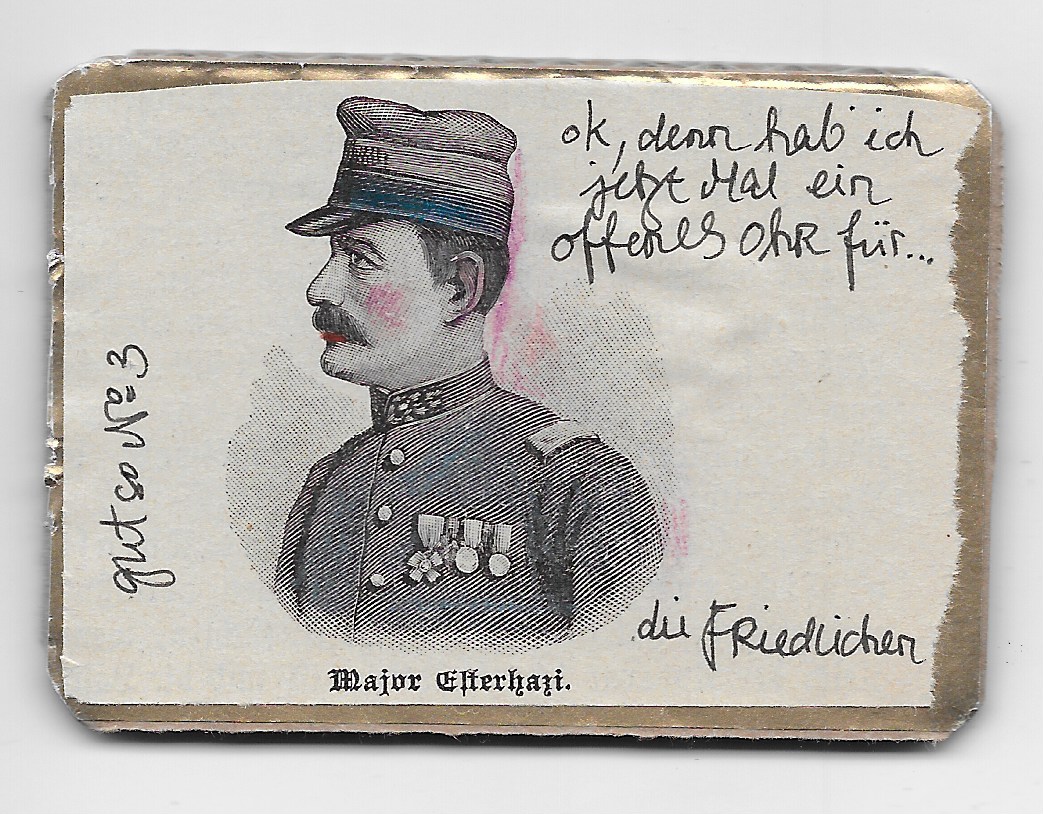 ok, denn hab ich
jetzt Mal ein
offenes Ohr für...
gut so No=3
die Friedlichen
Major Esterhazi.